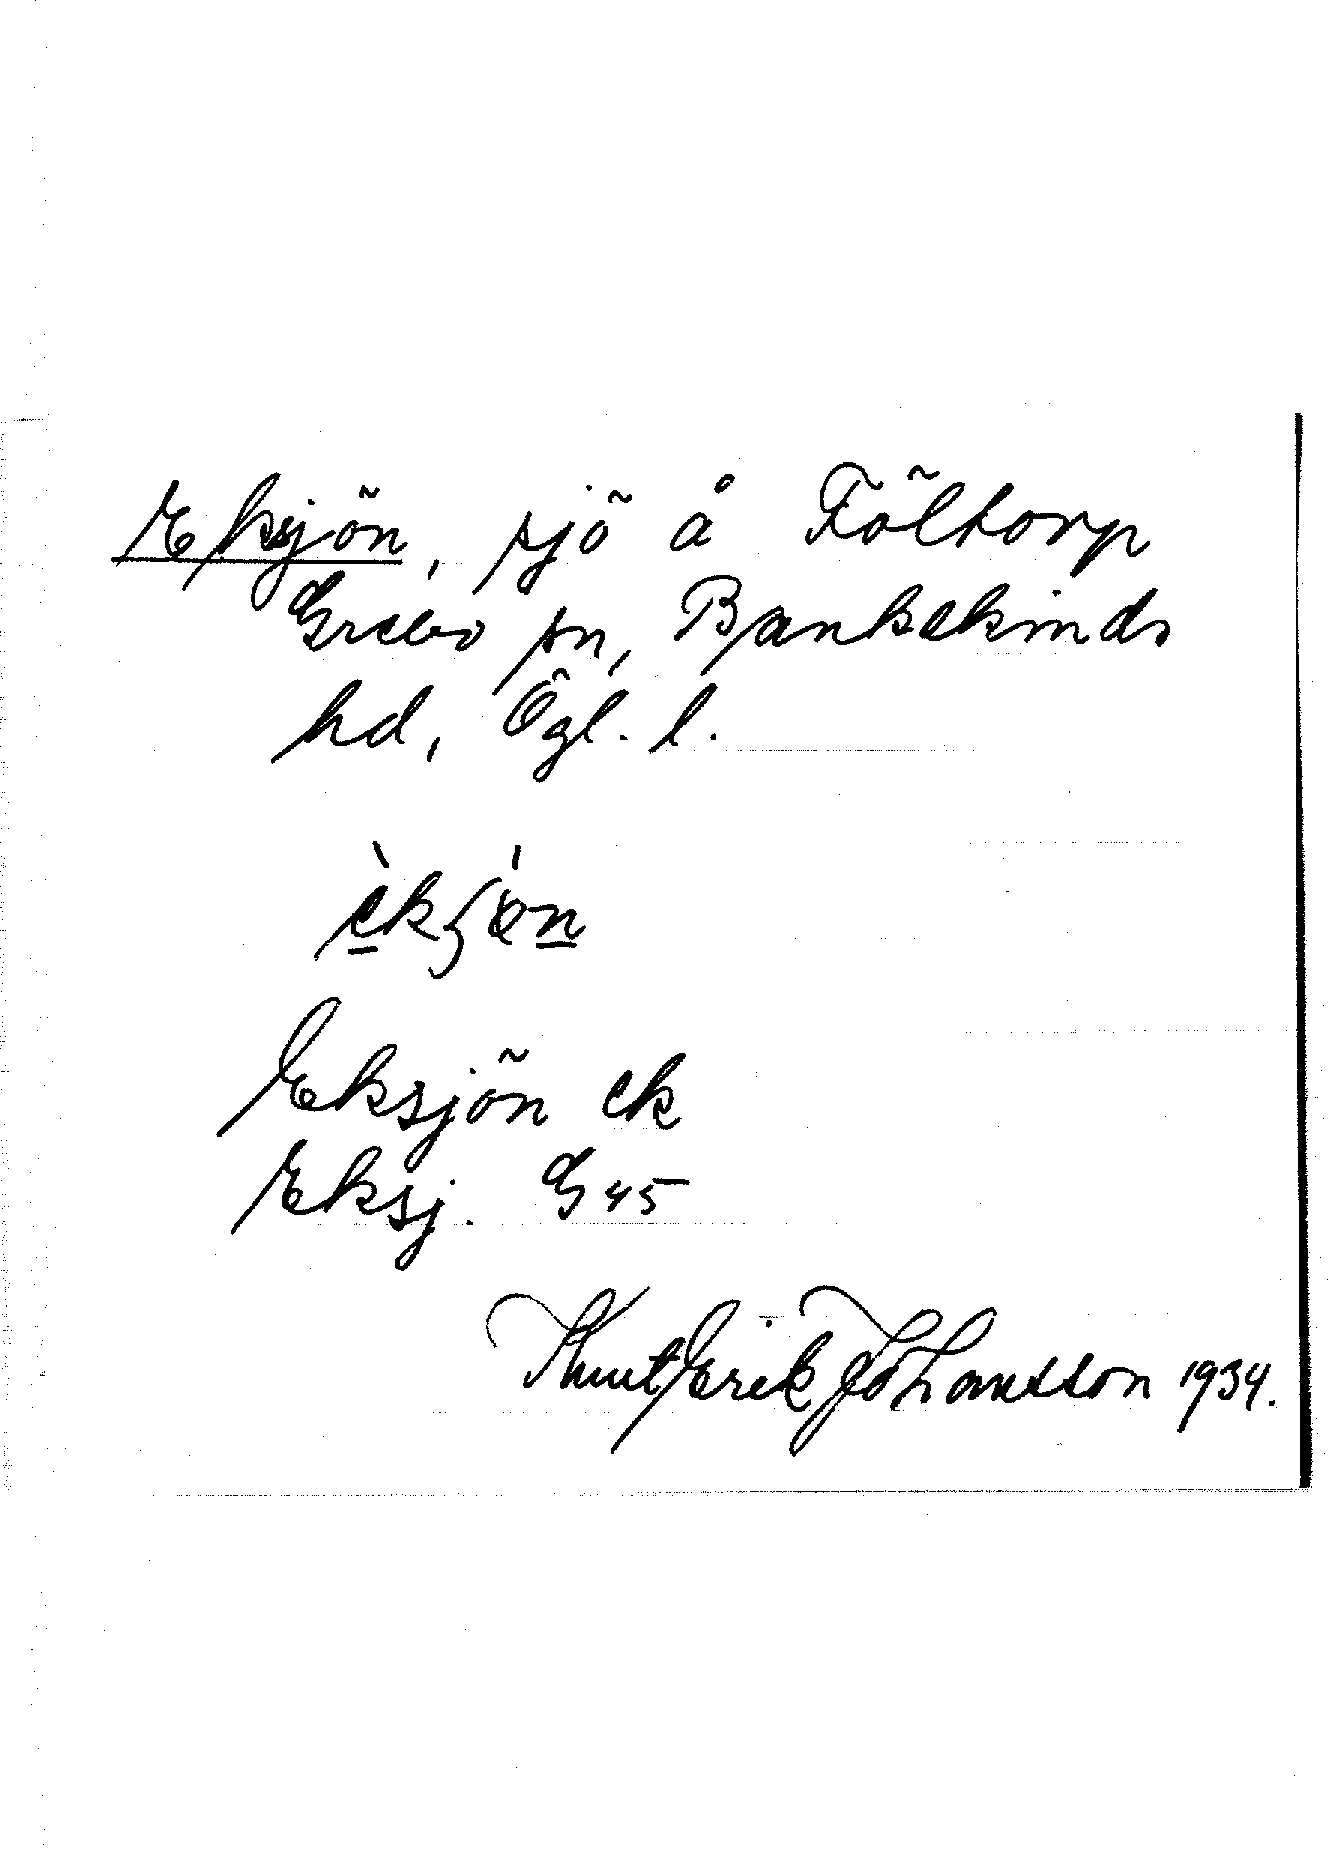 Eksjön, sjö åFöltorp
Grebo sn, Bankekinds
hd, Ögl. l.
Eksjön ek
Eksj. G 45
Knut Erik Johansson 1934.